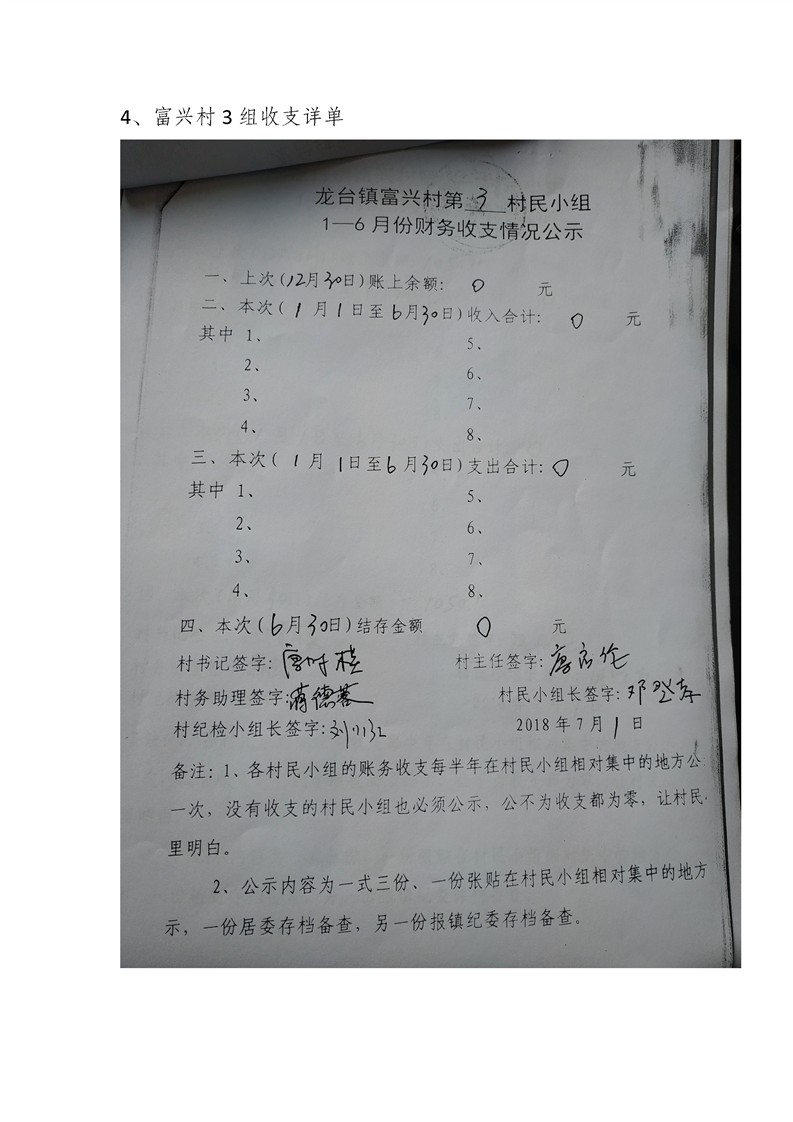 4、富兴村 3 组收支详单
龙台镇富兴村第 3 村民小组
1—6 月份财务收支情况公示
一、上次(12月30日)账上余额: 0 元
二、本次( 1 月 1 日至 6 月30日)收入合计: 0 元
其中 1、 5、
2、 6、
3、 7、
4、 8、
三、本次( 1 月 1日至 6 月30日)支出合计: 0 元
其中 1、 5、
2、 6、
3、 7、
4、 8、
四、本次(6月30日)结存金额 0 元
村书记签字: 村主任签字:
村务助理签字:蒋德蓉 村民小组长签字:邓
村纪检小组长签字:刘川江 2018 年 7 月 1 日
备注: 1、各村民小组的账务收支每半年在村民小组相对集中的地方公
一次，没有收支的村民小组也必须公示，公不为收支都为零，让村民
里明白。
2、公示内容为一式三份、一份张贴在村民小组相对集中的地方
示，一份居委存档备查，另一份报镇纪委存档备查。